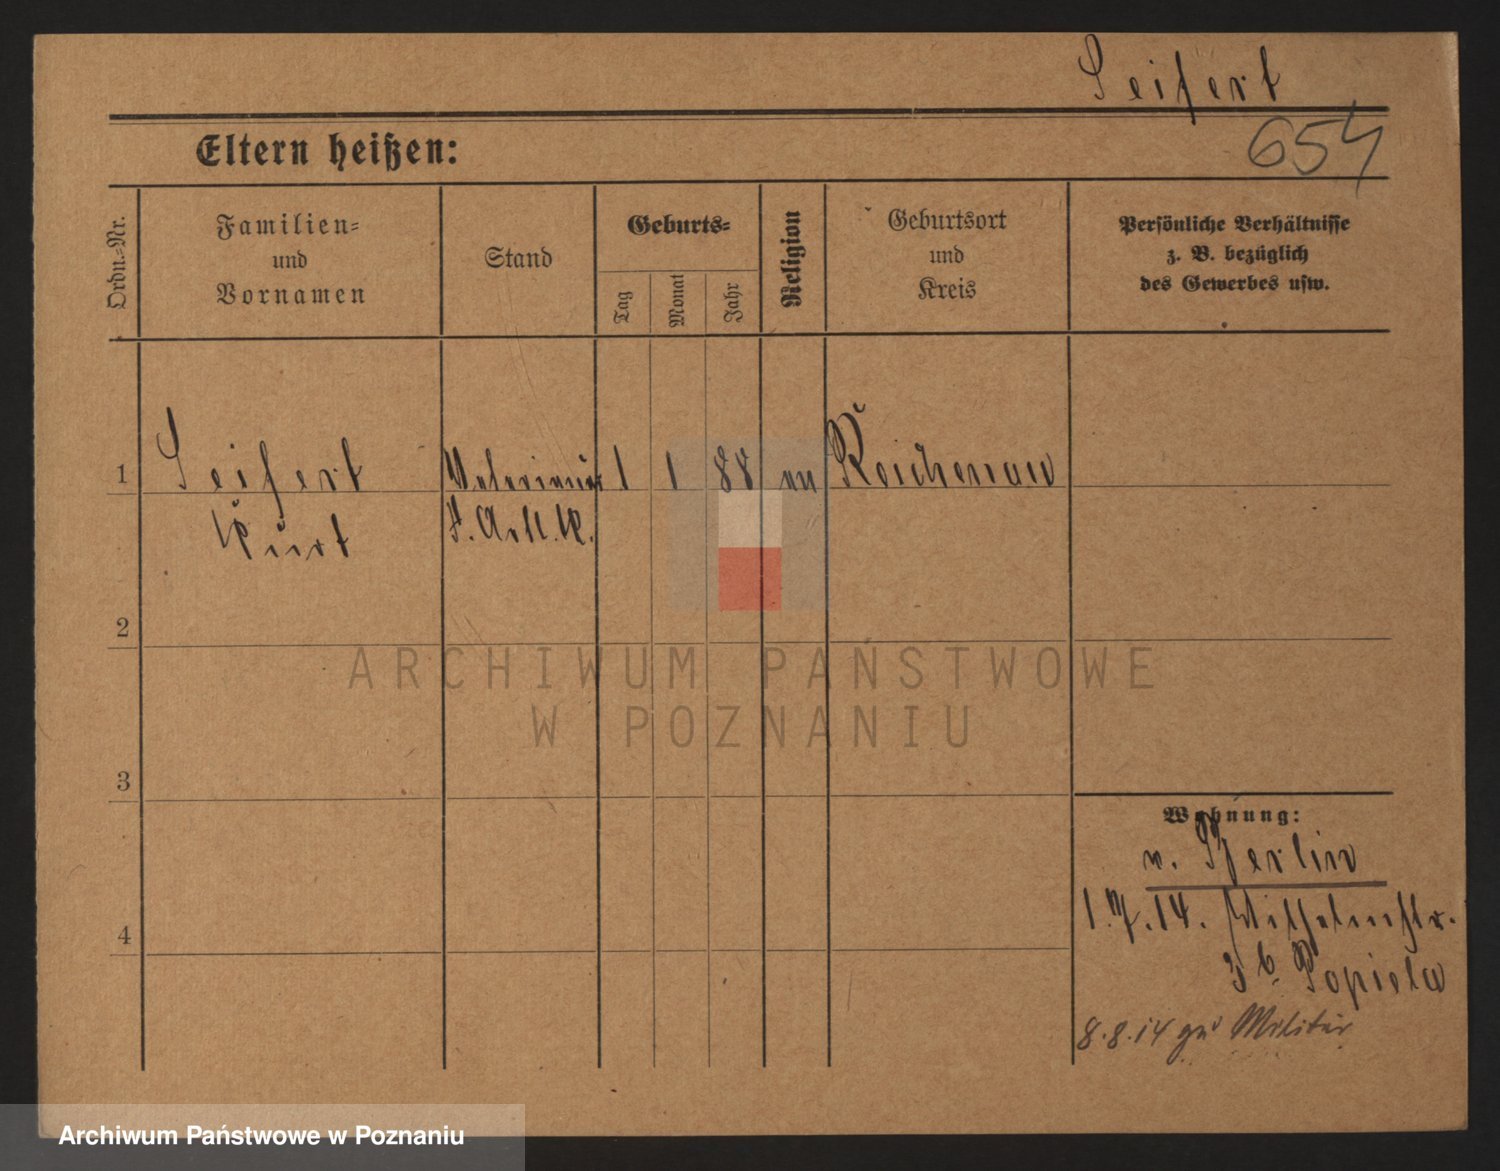 Seifert
654
Eltern heißen:
Ordn.-Nr.
Familien-
und
Vornamen
Stand
Geburts-
Tag
Monat
Jahr
Religion
Geburtsort
und
Kreis
Persönliche Verhältnisse
z. B. bezüglich
des Gewerbes usw.
1
Seifert
Veterinär
1 1 88
Reichenau
Kurt
2
ARCHIWUM PAŃSTWOWE
W POZNANIU
3
Wohnung:
v. Berlin
1.7.14. Wilhelmstr.
b. Popiela
4
8.8.14 zu Militär
Archiwum Państwowe w Poznaniu